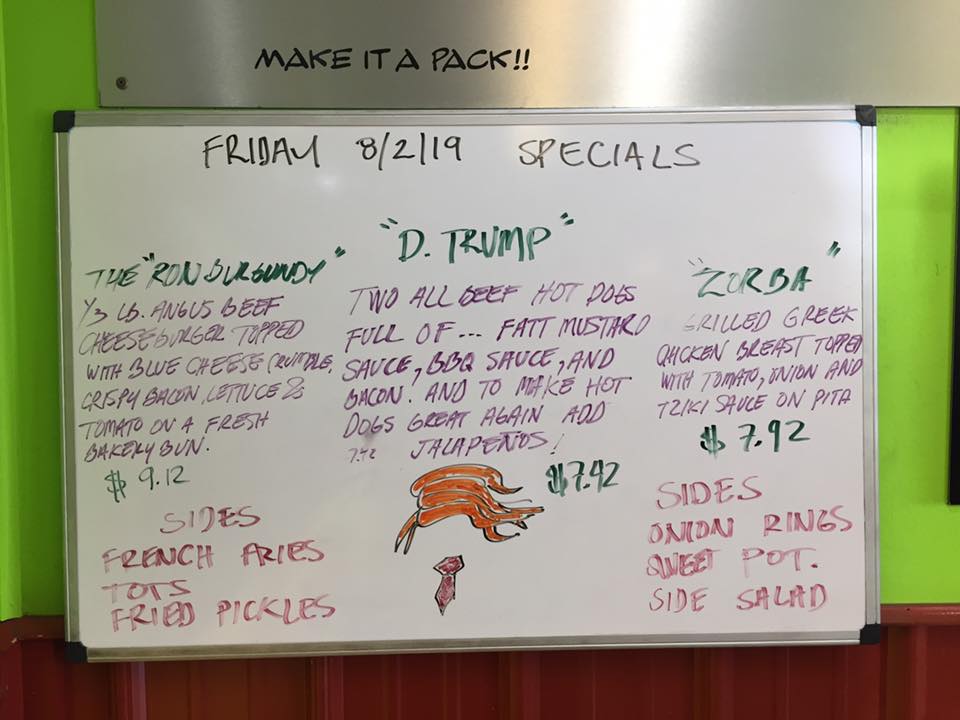 MAKE IT A PACK!!
FRIDAY 8/2/19 SPECIALS
THE "RON BURGUNDY"
1/3 LB. ANGUS BEEF
CHEESEBURGER TOPPED
WITH BLUE CHEESE CRUMBLE,
CRISPY BACON, LETTUCE &
TOMATO ON A FRESH
BAKERY BUN.
$ 9.12
SIDES
FRENCH FRIES
TOTS
FRIED PICKLES
"D. TRUMP"
TWO ALL BEEF HOT DOGS
FULL OF... FATT MUSTARD
SAUCE, BBQ SAUCE, AND
BACON. AND TO MAKE HOT
DOGS GREAT AGAIN ADD
7.42 JALAPEÑOS!
$7.42
"ZORBA"
GRILLED GREEK
CHICKEN BREAST TOPPED
WITH TOMATO, ONION AND
TZIKI SAUCE ON PITA
$ 7.92
SIDES
ONION RINGS
SWEET POT.
SIDE SALAD